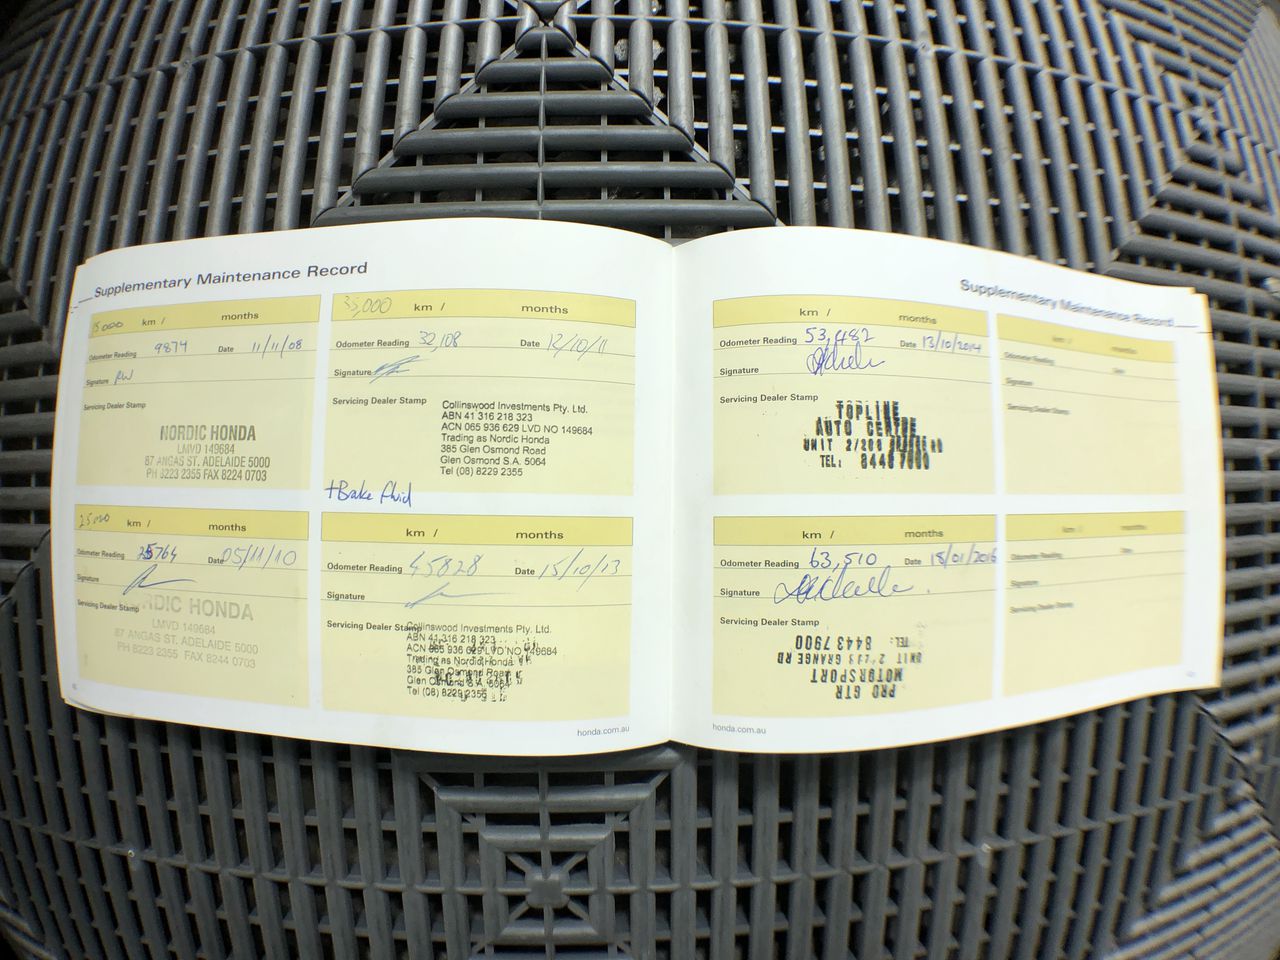 Supplementary Maintenance Record
15000 km / months
Odometer Reading 9874 Date 11/11/08
Signature RW
Servicing Dealer Stamp
NORDIC HONDA
LMVD 149684
87 ANGAS ST. ADELAIDE 5000
PH 8223 2355 FAX 8224 0703
25000 km / months
Odometer Reading 25764 Date 05/11/10
Signature
Servicing Dealer Stamp
RDIC HONDA
LMVD 149684
87 ANGAS ST. ADELAIDE 5000
PH 8223 2355 FAX 8244 0703
35,000 km / months
Odometer Reading 32,108 Date 12/10/11
Signature
Servicing Dealer Stamp
Collinswood Investments Pty. Ltd.
ABN 41 316 218 323
ACN 065 936 629 LVD NO 149684
Trading as Nordic Honda
385 Glen Osmond Road
Glen Osmond S.A. 5064
Tel (08) 8229 2355
+Brake fluid
km / months
Odometer Reading 45828 Date 15/10/13
Signature
Servicing Dealer Stamp
Collinswood Investments Pty. Ltd.
ABN 41 316 218 323
ACN 065 936 629 LVD NO 149684
Trading as Nordic Honda
385 Glen Osmond Road
Glen Osmond S.A. 5064
Tel (08) 8229 2355
honda.com.au
Supplementary Maintenance Record
km / months
Odometer Reading 53,482 Date 13/10/2014
Signature
Servicing Dealer Stamp
TOPLINE
AUTO CENTRE
UNIT 2/200 RD
TEL: 8443 7900
km / months
Odometer Reading 63,510 Date 18/01/2016
Signature
Servicing Dealer Stamp
PRO GTR
MOTORSPORT
UNIT GRANGE RD
TEL: 8443 7900
km / months
Odometer Reading Date
Signature
Servicing Dealer Stamp
km / months
Odometer Reading Date
Signature
Servicing Dealer Stamp
honda.com.au